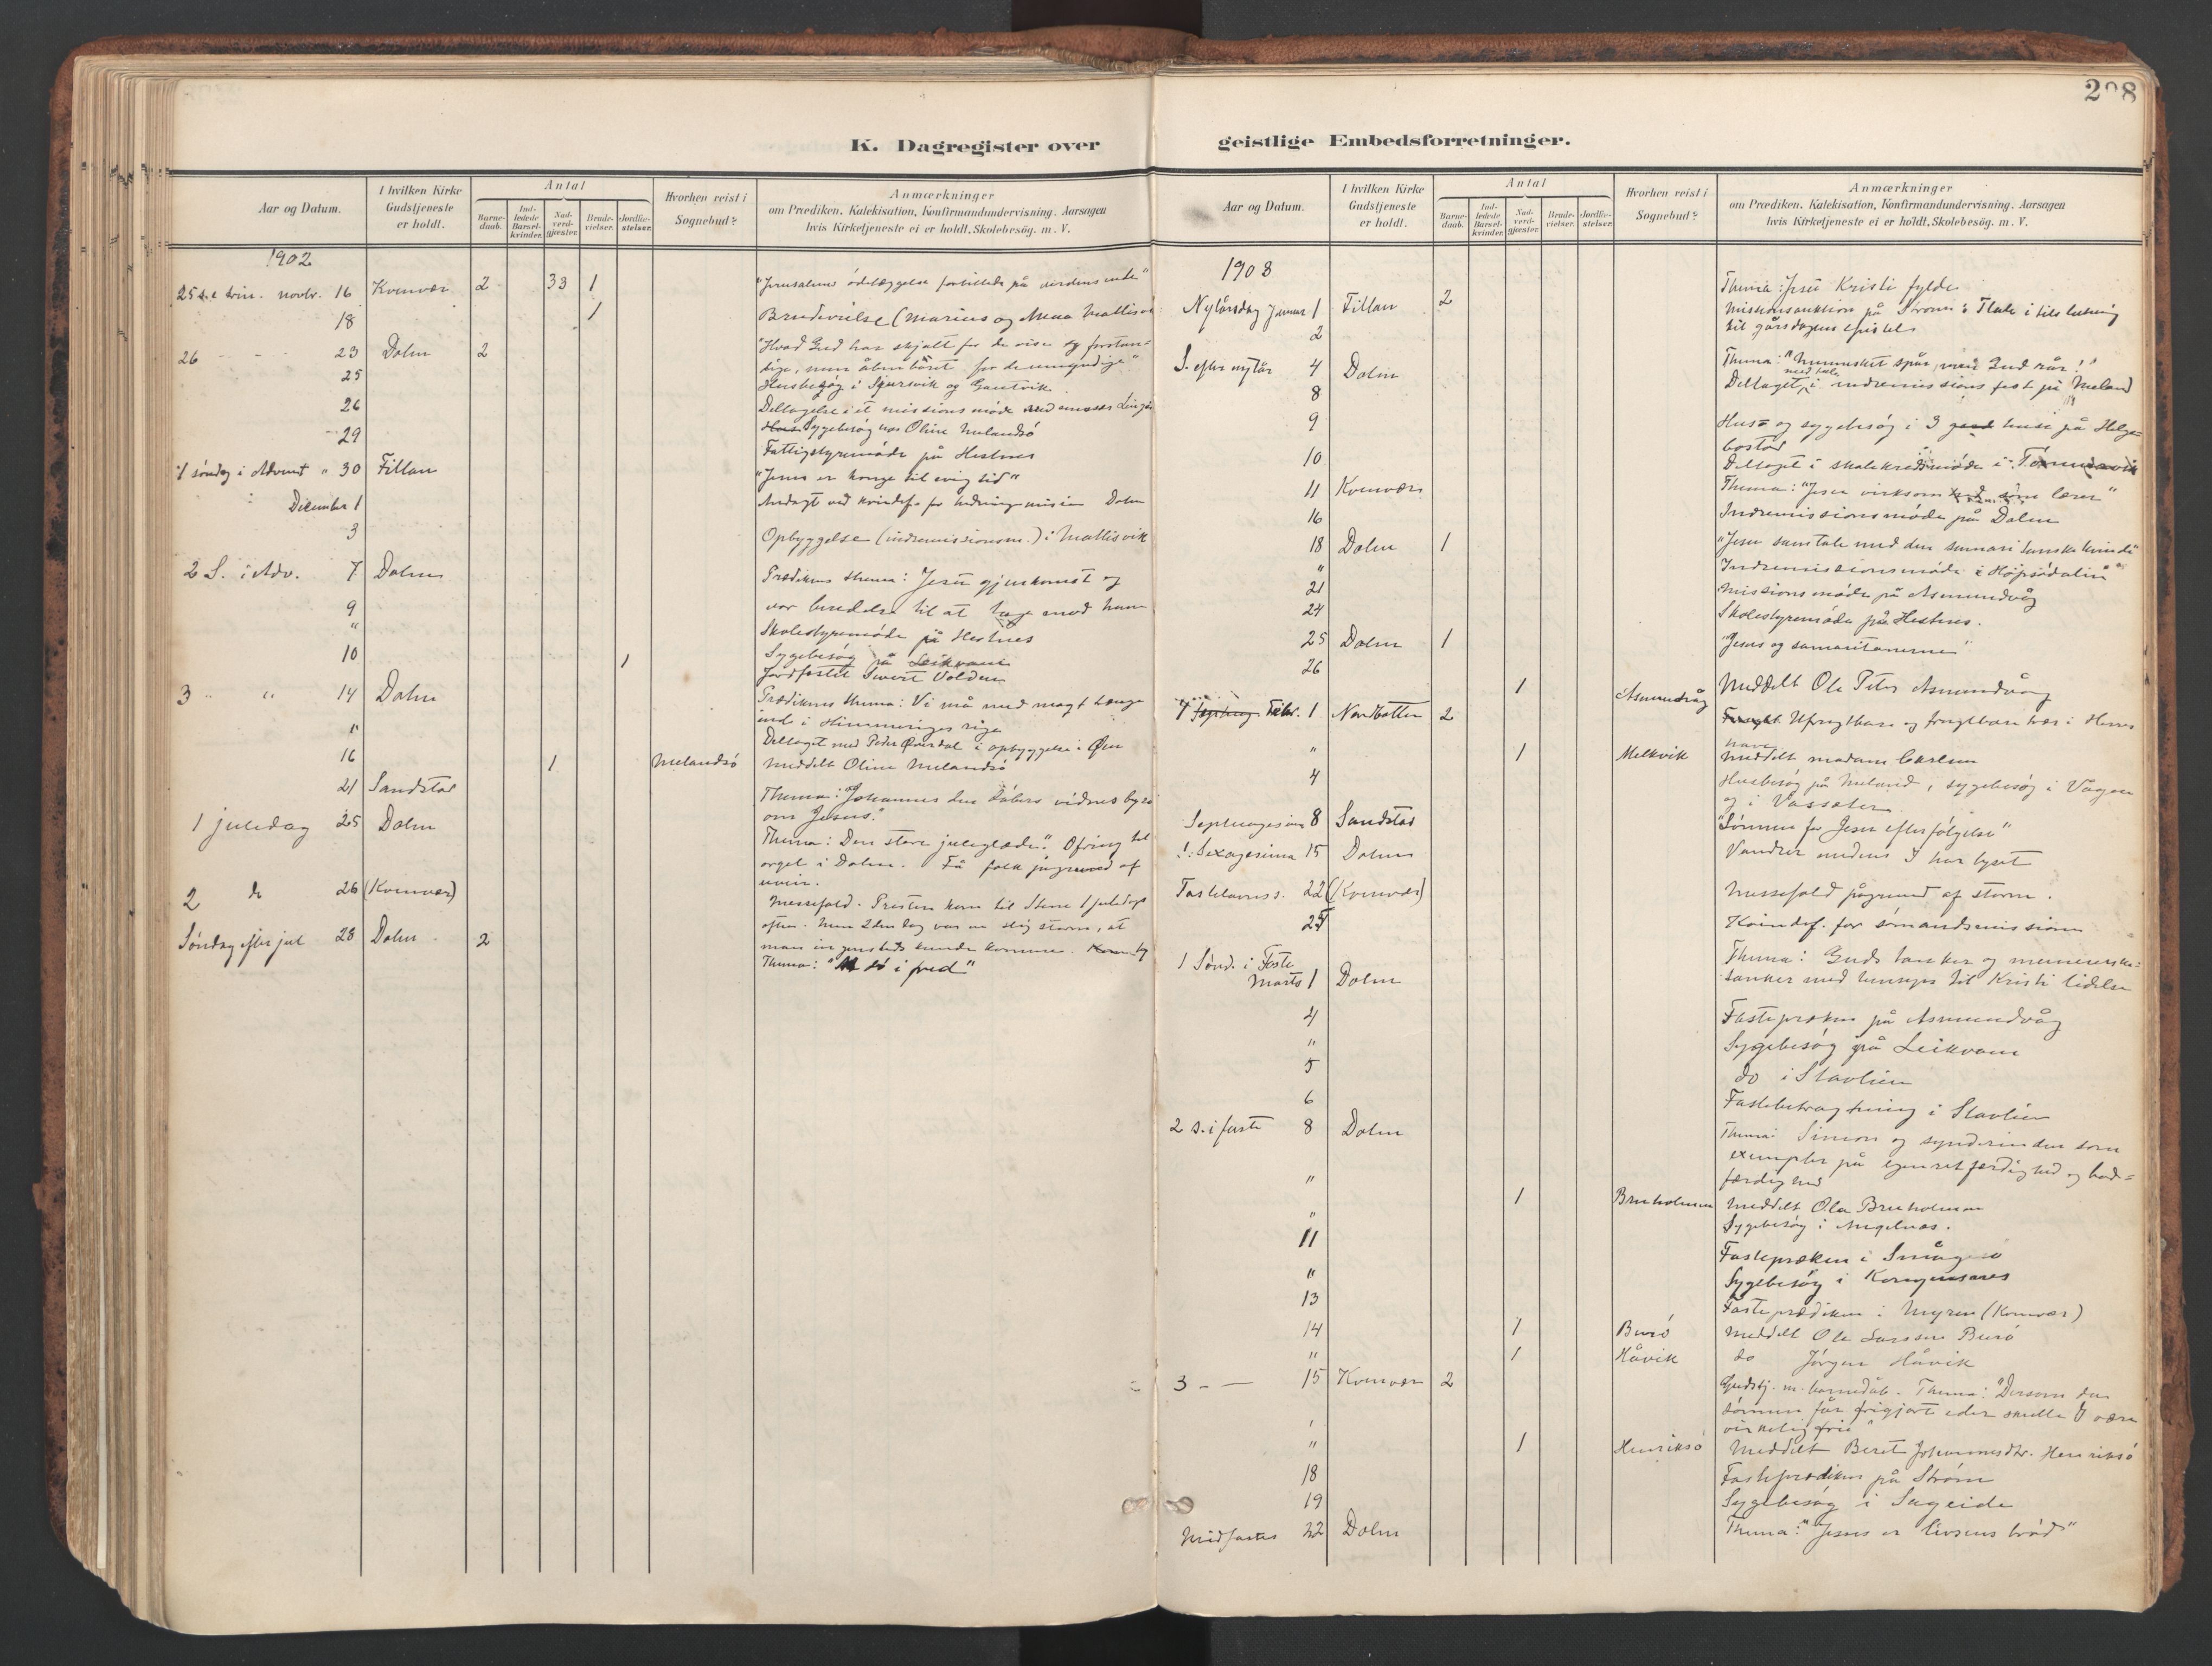 208
K. Dagregister over geistlige Embedsforretninger.
Aar og Datum.
I hvilken Kirke Gudstjeneste er holdt.
Antal
Barne-daab.
Ind-ledede Barsel-kvinder.
Nad-verd-gjæster.
Brude-vielser.
Jordfæ-stelser.
Hvorhen reist i Sognebud?
Anmærkninger
om Prædiken, Katekisation, Konfirmandundervisning. Aarsagen
hvis Kirketjeneste ei er holdt, Skolebesög. m. V.
1902
25 s. e. trin. novbr. 16 Kvenvær 2 33 1 "Jerusalems ödelæggelse forbillede på verdens ende"
18 1 Brudevielse (Marius og Anna Mattisvi
26 - - 23 Dolm 2 "Hvad Gud har skjult for de vise og forstan-
dige, men åbenbaret for de umyndige"
25 Husbesøg i Sjursvik og Gautvik
26 Deltagelse i et missionsmøde
29 Sygebesøg hos Oline Melandsö
Fattigstyremøde på Hestnes
1 söndag i Advent " 30 Fillan "Jesus er konge til evig tid"
December 1 Andagt ved kvindef. for hedningemission Dolm
3 Opbyggelse (indremissionsm.) i Mattisvik
2 S. i Adv. 7 Dolm Prædikens thema: Jesu gjenkomst og
vor beredelse til at tage mod ham
9 Skolestyremøde på Hestnes
" Sygebesøg på Leikvam
10 1 Jordfæstet Sivert Volden
3 " " 14 Dolm Prædikenes thema: Vi må med magt trænge
ind i Himmeriges rige
" Deltaget med Peder Øverdal i opbyggelse i Øien
16 1 Melandsö Meddelt Oline Melandsö
21 Sandstad Thema: Johannes den döbers vidnesbyrd
om Jesus."
1 juledag 25 Dolm Thema: Den store juleglæde." Ofring til
orgel i Dolm. Få folk pågrund af
uveir.
2 do 26 (Kvenvær) Messefald. Presten kom til Stene 1 juledags
aften. Men 2den dag var en slig storm, at
man ingensteds kunde komme.
Söndag efter jul 28 Dolm 2 Thema: "At dö i fred"
Aar og Datum.
I hvilken Kirke Gudstjeneste er holdt.
Antal
Barne-daab.
Ind-ledede Barsel-kvinder.
Nad-verd-gjæster.
Brude-vielser.
Jordfæ-stelser.
Hvorhen reist i Sognebud?
Anmærkninger
om Prædiken, Katekisation, Konfirmandundervisning. Aarsagen
hvis Kirketjeneste ei er holdt, Skolebesög. m. V.
1903
Nytårsdag Januar 1 Fillan 2 Thema: Jesu Kristi fylde
2 Missionsauktion på Strøm. Tale i tilslutning
til gårsdagens epistel
S. efter nytår 4 Dolm Thema: "Mennesket spår, men Gud rår!"
8 Deltaget med tale i indremissionsfest på Meland
9 Hus- og sygebesög i 3 huse på Helge-
bostad
10 Deltaget i skolekredsmøde i
11 Kvenvær Thema: "Jesu virksomhed som lærer"
16 Indremissionsmøde på Dolm
18 Dolm 1 "Jesu samtale med den samaritanske kvinde"
" Indremissionsmøde i Hopsödalen
21 Missionsmøde på Asmundvåg
24 Skolestyremøde på Hestnes.
25 Dolm 1 "Jesus og samaritanerne"
26 1 Asmundvåg Meddelt Ole Peter Asmundvåg
Febr. 1 Nordbotten 2 Ufrugtbare og frugtbare træer i Herrens
have
" 1 Melkvik Meddelt madam Carlsen
4 Husbesøg på Meland, sygebesög i Vågen
og i Vassæter
Septuagesima 8 Sandstad "Lönnen for Jesu efterfölgelse"
Sexagesima 15 Dolm Vandrer medens I har lyset
Fastelavnss. 22 (Kvenvær) Messefald pågrund af storm.
25 Kvindef. for sömandsmissionen
1 Sönd. i Faste
Marts 1 Dolm Thema: Guds tanker og menneske-
tanker med hensyn til Kristi lidelse
4 Fastepræken på Asmundvåg
" Sygebesøg på Leikvam
5 do i Stavlien
6 Fastebetragtning i Stavlien
2 s. i faste 8 Dolm Thema: Simon og synderinden som
exempler på egenretfærdighed og bod-
færdighed
" 1 Bruholmen Meddelt Ola Bruholmen
" Sygebesøg i
11 Fastepræken i Småge
" Sygebesøg i Kongensvoll
13 Fasteprædiken i Myren (Kvenvær)
14 1 Burö Meddelt Ole Larssen Burö
" 1 Håvik do Jörgen Håvik
3 - - 15 Kvenvær 2 Gudstj. m. barnedåb. Thema: "Dersom da
sönnen får frigjort eder skulle I være
virkelig frie"
" 1 Henriksö Meddelt Beret Johannesdtr. Henriksö
18 Fasteprædiken på Strøm
19 Sygebesøg i Sageide
Midfaste 22 Dolm Thema: "Jesus er livsens bröd"